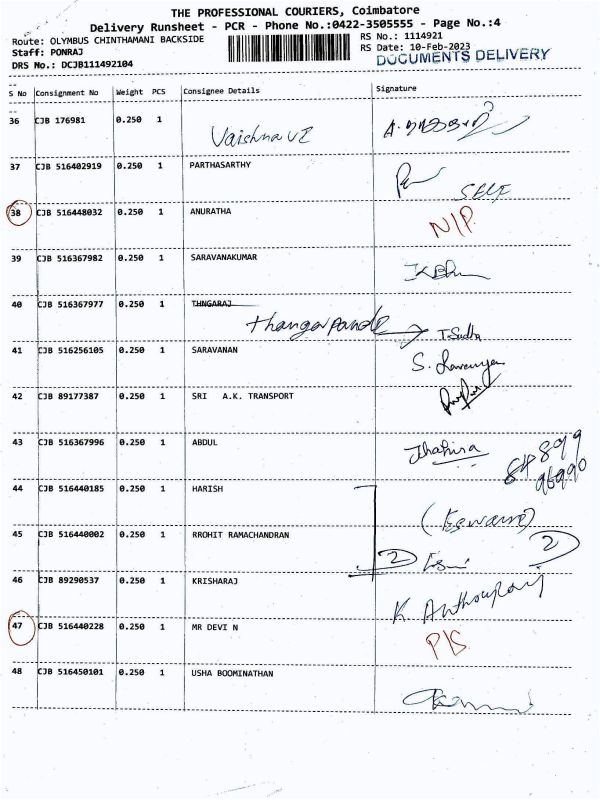 THE PROFESSIONAL COURIERS, Coimbatore
Delivery Runsheet - PCR - Phone No.:0422-3505555 - Page No.:4
Route: OLYMBUS CHINTHAMANI BACKSIDE RS No.: 1114921
Staff: PONRAJ RS Date: 10-Feb-2023
DRS No.: DCJB111492104 DOCUMENTS DELIVERY
S No Consignment No Weight PCS Consignee Details Signature
36 CJB 176981 0.250 1 Vaishnavi
37 CJB 516402919 0.250 1 PARTHASARTHY
SELF
38 CJB 516448032 0.250 1 ANURATHA N/P
39 CJB 516367982 0.250 1 SARAVANAKUMAR
40 CJB 516367977 0.250 1 THNGARAJ
T.Sudha
41 CJB 516256105 0.250 1 SARAVANAN
42 CJB 89177387 0.250 1 SRI A.K. TRANSPORT
43 CJB 516367996 0.250 1 ABDUL
44 CJB 516440185 0.250 1 HARISH
45 CJB 516440002 0.250 1 RROHIT RAMACHANDRAN
2 2
46 CJB 89290537 0.250 1 KRISHARAJ
47 CJB 516440228 0.250 1 MR DEVI N P/S
48 CJB 516450101 0.250 1 USHA BOOMINATHAN